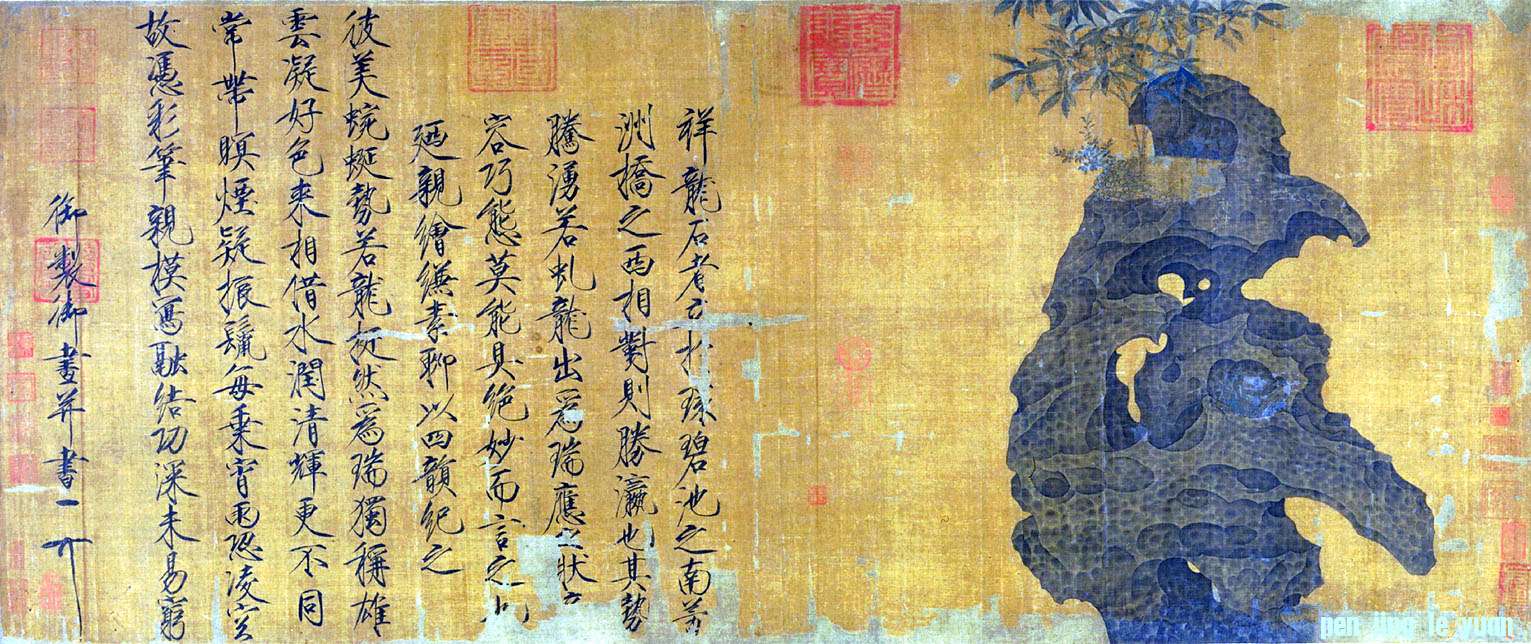 祥龍石者立於環碧池之南芳
洲橋之西相對則勝瀛也其勢
騰湧若虬龍出爲瑞應之狀
容巧態莫能具絕妙而言之也
廼親繪縑素聊以四韻紀之
彼美蜿蜒勢若龍挺然爲瑞獨稱雄
雲凝好色來相借水潤清輝更不同
常帶暝煙疑振鬣每乘宵雨恐凌空
故憑彩筆親模寫融結功深未易窮
御製御畫并書一
pen jing le yuan